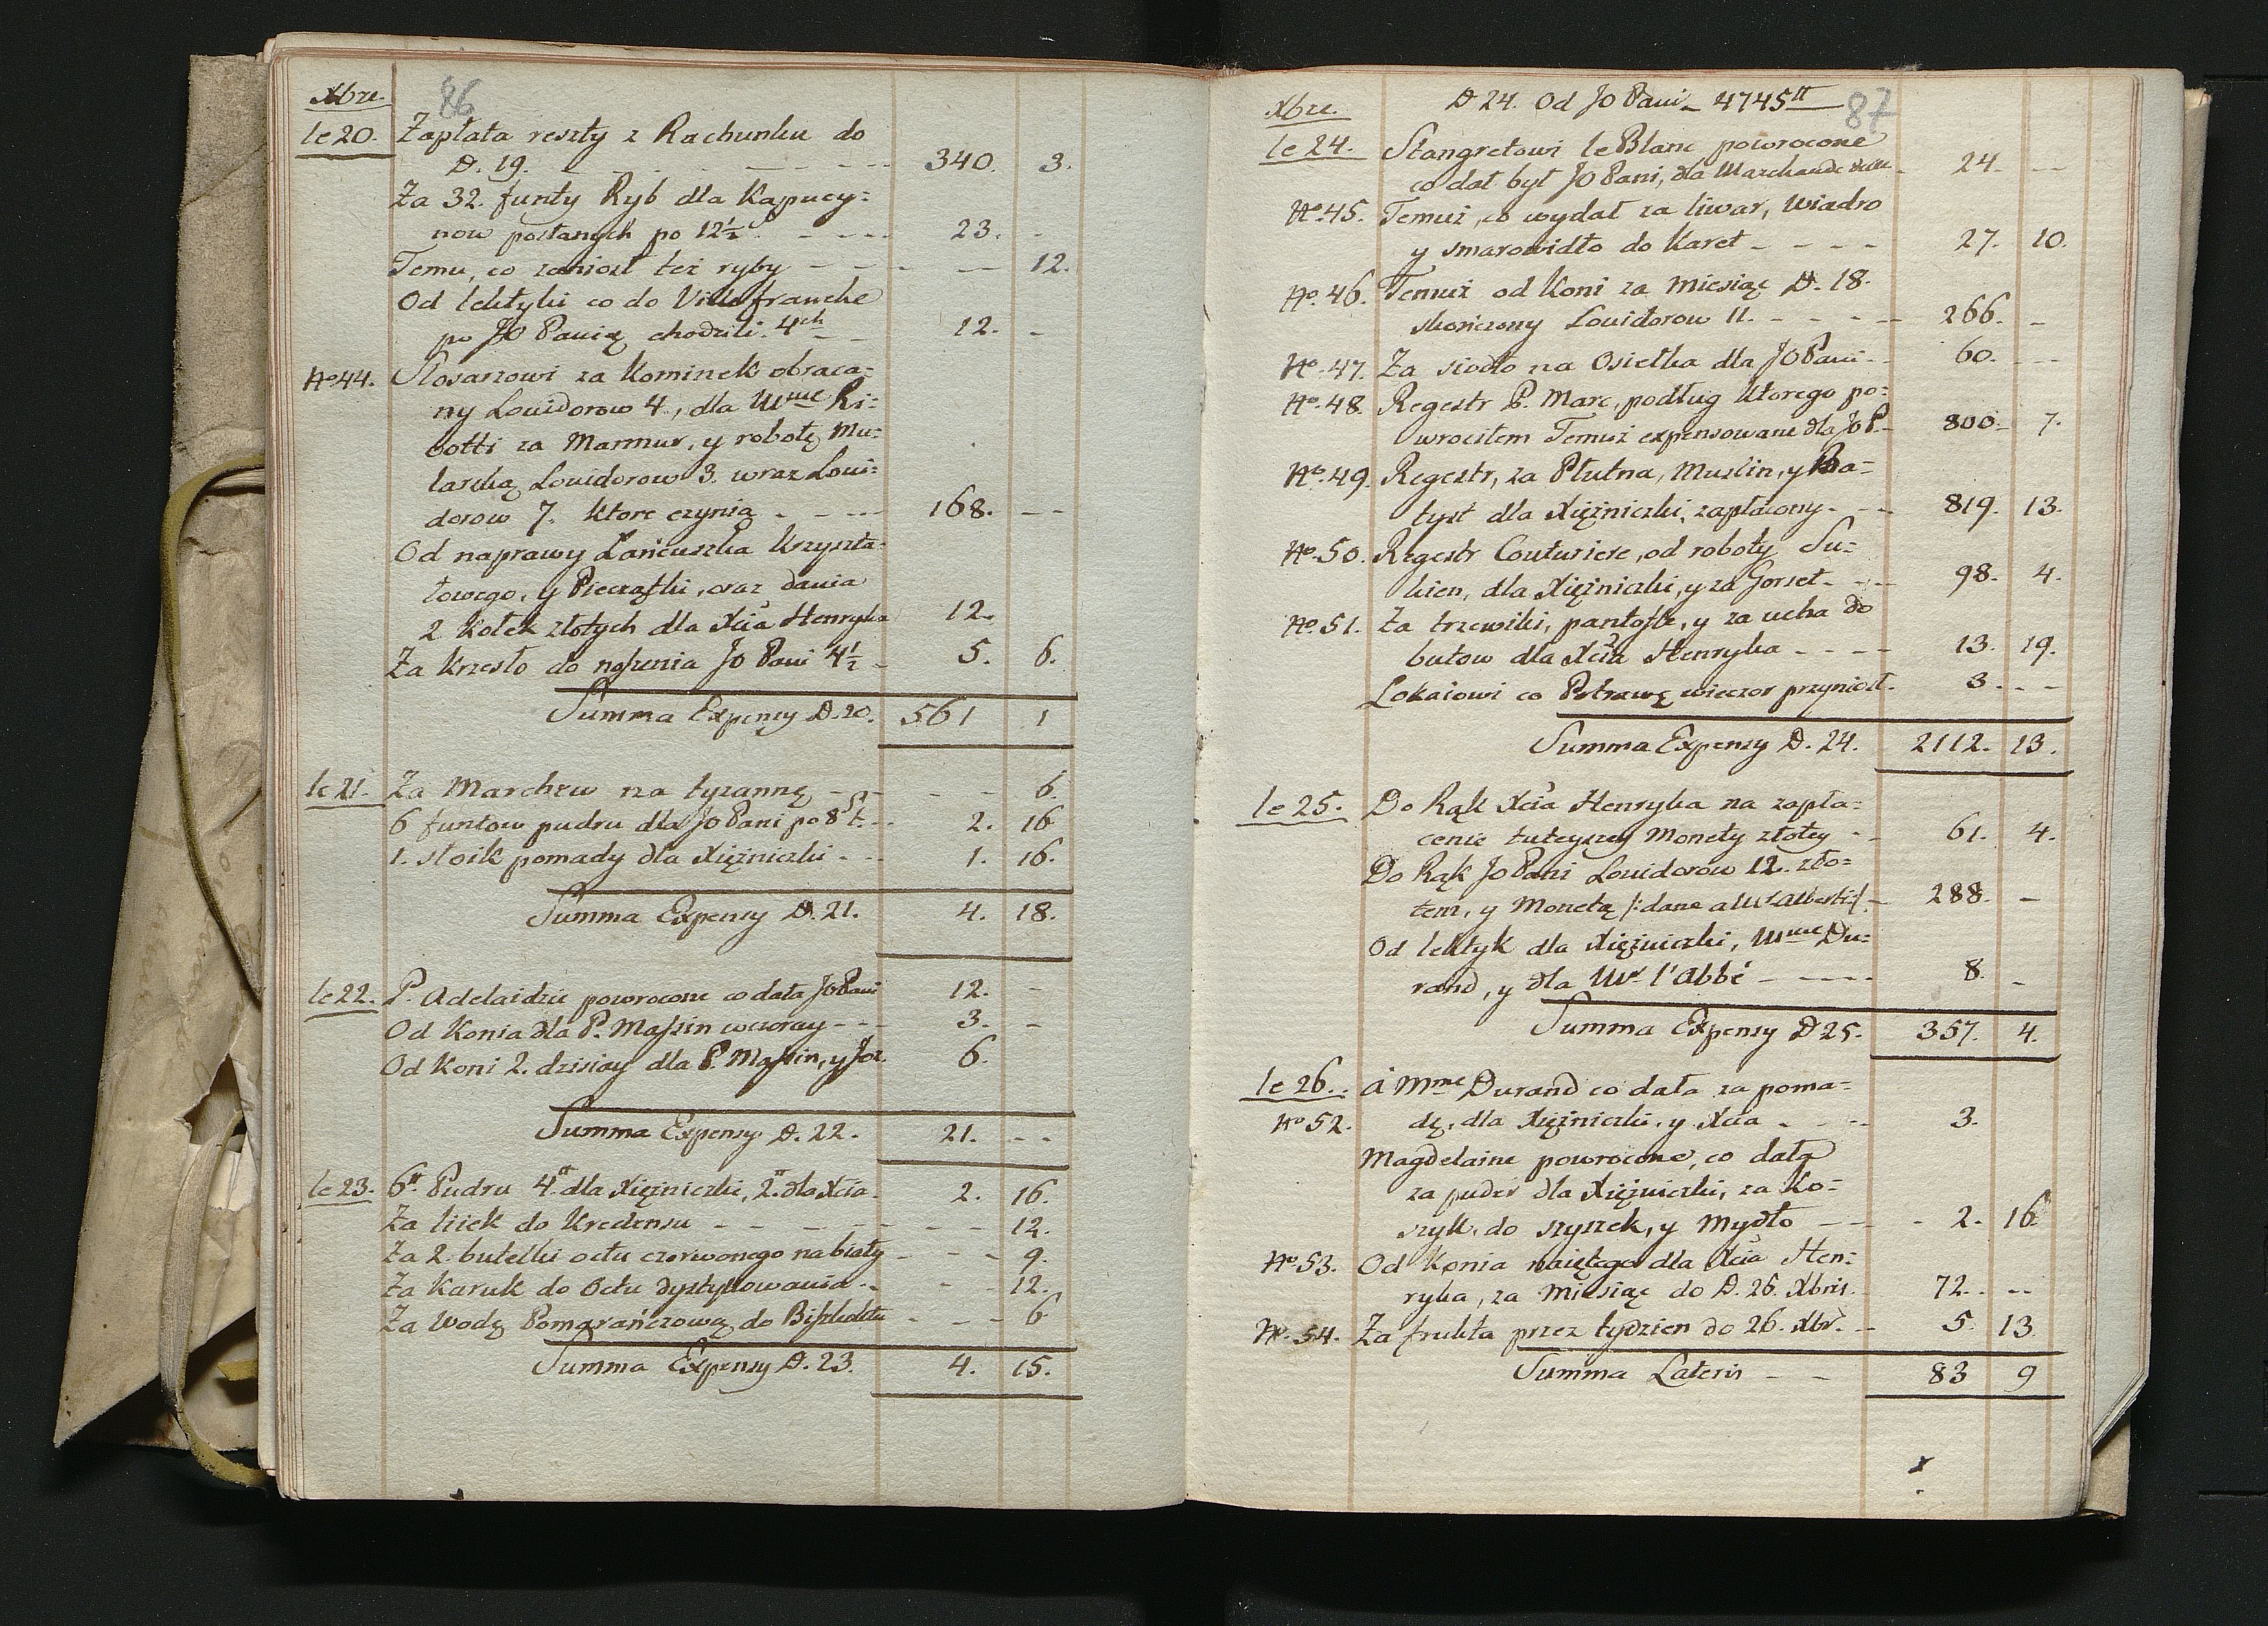 86
Xbre.
le 20. Zapłata reszty z Rachunku do
D. 19. - - - - - 340. 3.
Za 32. funty Ryb dla Kapucy=
now posłanych po 12½ - - - - 23. -
Temu, co zaniosł też ryby - - - - - 12.
Od lektyki co do Villefranche
po JO Panią chodzili. 4ch - - 12. -
No 44. Slosarzowi za Kominek obraca=
ny Louidorow 4, dla Mme Ri=
botti za Marmur, y robotę Mu=
larską Louidorow 3. wraz Loui=
dorow 7. ktore czynią - - - - 168. - -
Od naprawy Łańcuszka Krzyszta=
łowego, y Pieczątki, oraz dania
2 Kołek złotych dla Xcia Henryka 12.
Za Krzesło do noszenia JO Pani 4½ - 5. 6.
Summa Expensy D. 20. 561 1
le 21. Za Marchew na tyzannę - - - - 6.
6 funtow pudru dla JO Pani po 8 st. - - 2. 16
1. słoik pomady dla Xiężniczki - - - 1. 16.
Summa Expensy D. 21. 4. 18.
le 22. P. Adelaidzie powrocone co dała JO Pani 12. -
Od Konia dla P. Maszin wczoray - - - 3. -
Od Koni 2. dzisiay dla P. Maszin, y Joz. 6.
Summa Expensy D. 22. 21. - -
le 23. 6tt Pudru 4tt dla Xiężniczki, 2tt dla Xcia. 2. 16.
Za liiek do Kredensu - - - - - - - 12.
Za 2. butelki octu czerwonego na biały - - - 9.
Za Karuk do Octu dystyllowania - - - - 12.
Za Wodę Pomarańczową do Biszkoktu - - - 6
Summa Expensy D. 23. 4. 15.
87
Xbre. D 24. Od JO Pani - 4745tt
le 24. Stangretowi le Blanc powrocone
co dał był JO Pani, dla Marchande - 24. - -
No. 45. Temuż, co wydał za liwar, Wiadro
y smarowidło do Karet - - - - 27. 10.
No. 46. Temuż od Koni za Miesiąc D. 18.
skończony Louidorow 11. - - - - - 266. -
No. 47. Za siodło na Osiełka dla JO Pani - - 60. - -
No. 48. Regestr P. Marc, podług ktorego po=
wrociłem Temuż expensowane dla JO P. - 800. 7.
No. 49. Regestr, za Płutna, Muslin, y Ba=
tyst dla Xiężniczki, zapłacony - - - 819. 13.
No. 50. Regestr Couturiere, od roboty Su=
kien, dla Xiężniczki, y za Gorset - - - 98. 4.
No. 51. Za trzewiki, pantofle, y za ucha do
butow dla Xcia Henryka - - - - 13. 19.
Lokaiowi co Potrawę wieczor przyniosł. 3. - -
Summa Expensy D. 24. 2112. 13.
le 25. Do Rąk Xcia Henryka na zapła=
cenie tuteyszey Monety złotey - - 61. 4.
Do Rąk JO Pani Louidorow 12. zło=
tem, y Monetą /:dane a Mr Alberti:/ - 288. -
Od lektyk dla Xiężniczki, Mme Du=
rand, y dla Mr l'Abbé - - - - - 8. -
Summa Expensy D 25. 357. 4.
le 26. á Mme Durand co dała za poma=
No 52. dę, dla Xiężniczki, y Xcia - - - 3.
Magdelaine powrocone, co dała
za puder dla Xiężniczki, za Ko=
szyk, do szyszek, y Mydło - - - 2. 16
No. 53. Od Konia naiętego dla Xcia Hen=
ryka, za Miesiąc do D. 26. Xbris. 72. - -
No. 54. Za frukta przez tydzien do 26. Xbr. - - 5. 13
Summa Lateris - - 83 9